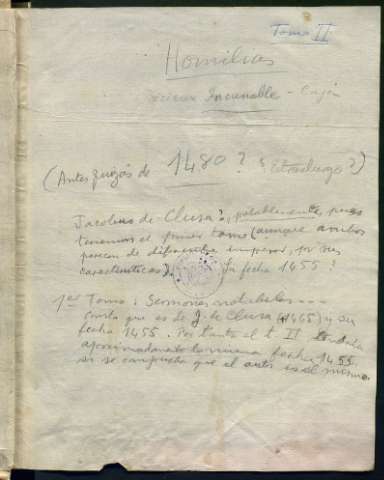 Tomo II
Homilias
Incunable - Caja
(Antes quizás de 1480? ¿Estrasburgo?)
Jacobus de Clusa?, probablemente, pues
tenemos el primer tomo (aunque ambos
parecen de diferente impresor, por sus
características). Su fecha 1455
1er Tomo: Sermones notabeles ...
Consta que es de J. de Clusa (1465) y su
fecha 1455. Por tanto el t. II
aproximadamente la misma fecha 1455
si se comprueba que el autor es el mismo.